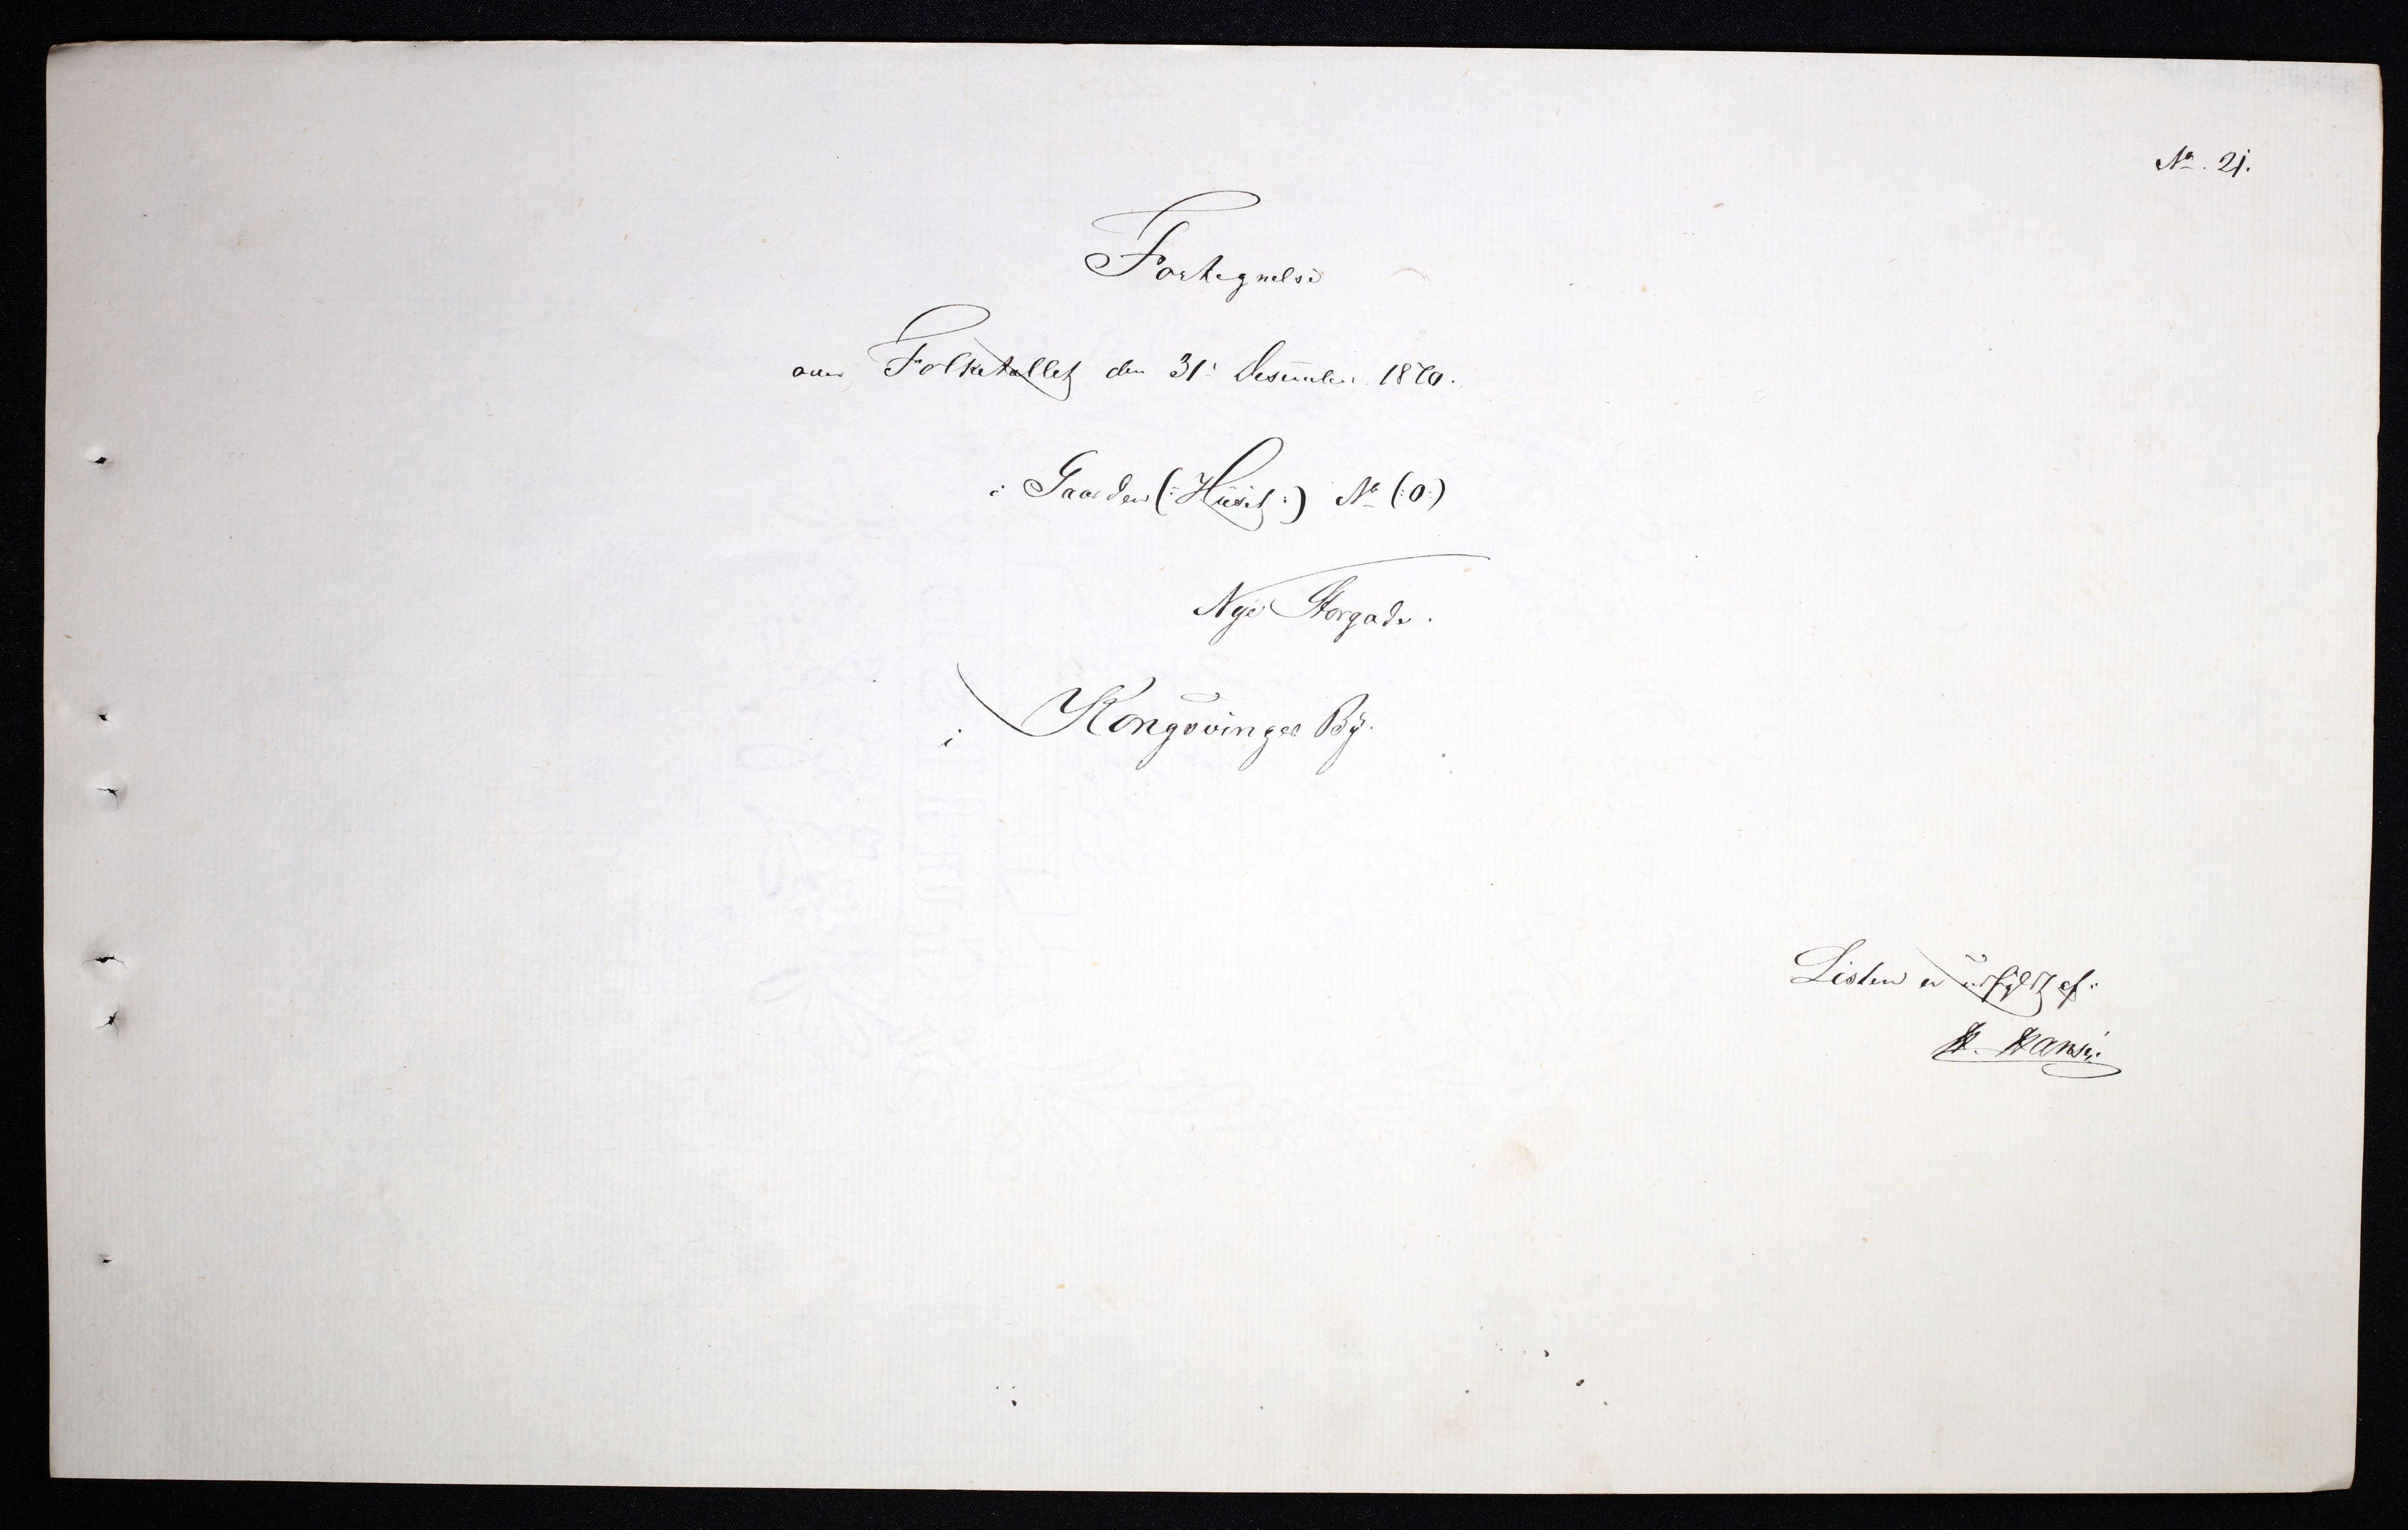 No. 21.
Fortegnelse
over Folketallet den 31' Desember 1870.
i Gaarden (: Huset :) No (: 0 :)
Nye Storgade.
i Kongsvinger By.
Listen er udfyldt af:
H. Hansen